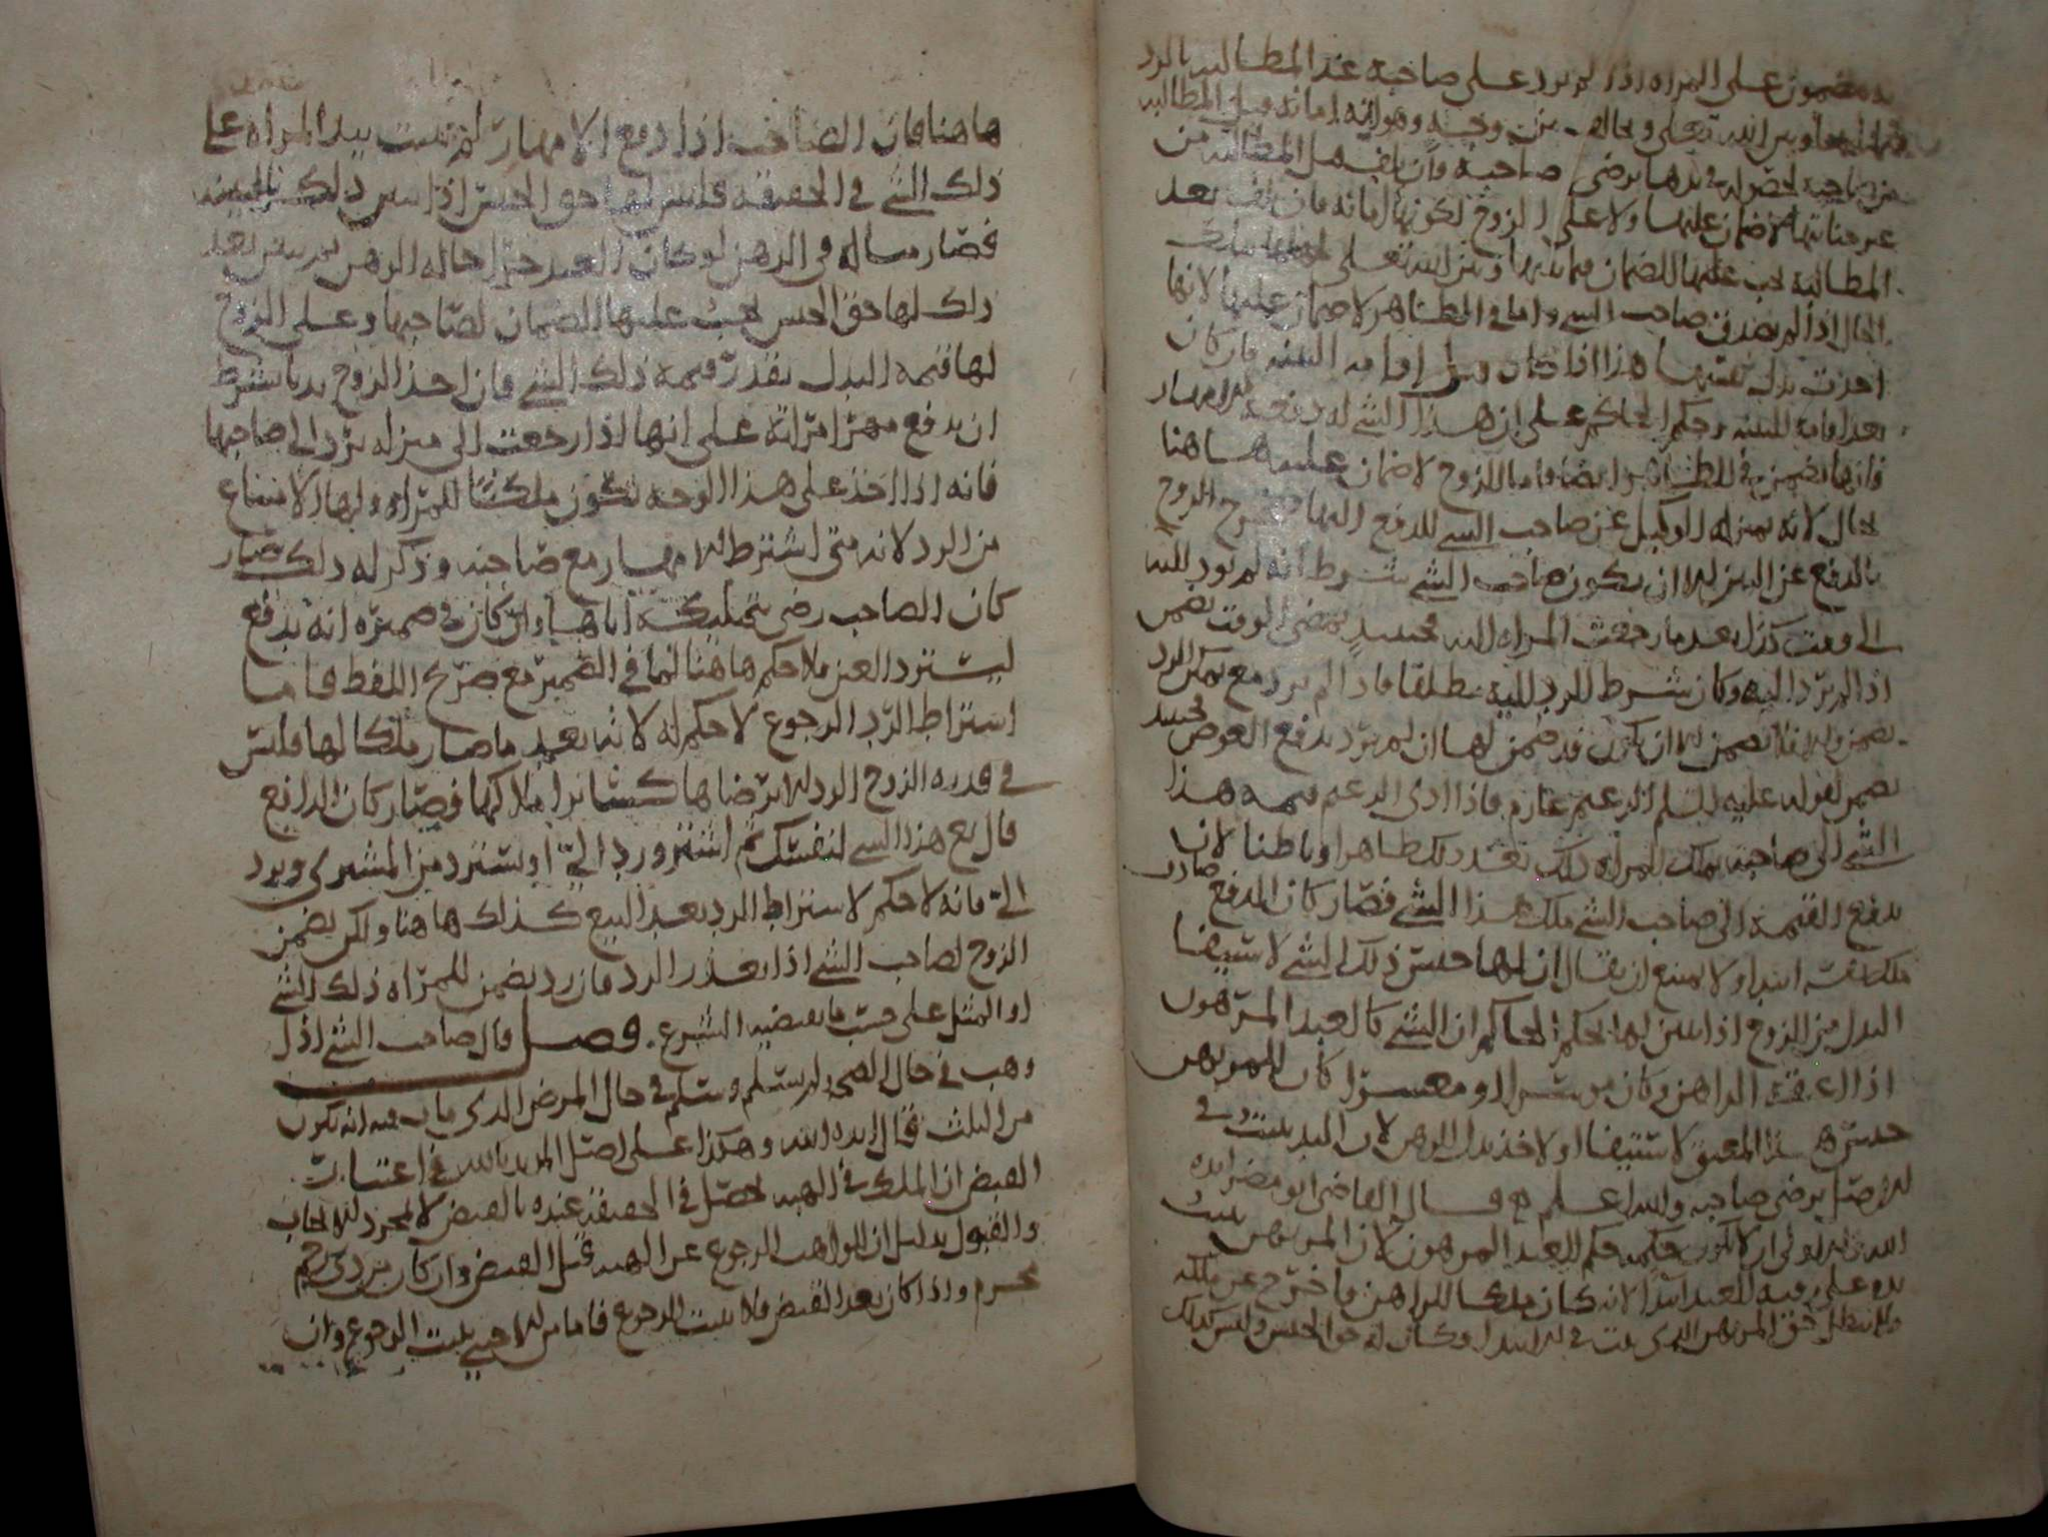 مضمون على المراه اذا لم يرد على صاحبه عند المطالبه بالرد
فيما بينها وبين الله تعلى وهو انه امانه قبل المطالبه
من صاحبه لحصوله في يدها برضى صاحبه فان تلف قبل المطالبه من
غير جنايتها فلا ضمان عليها ولا على الزوج لكونها امانه فان تلف بعد
المطالبه يجب عليها الضمان فيما بينها وبين الله تعلى
الحال اذا لم يصدق صاحب الشي واما في الظاهر لا ضمان عليها لانها
اخذت بدل بضعها هذا اذا كان قبل اقامه البينه فان كان
بعد اقامه البينه وحكم الحاكم على ان هذا الشي له دفعه للامهار
فانها تضمن في الظاهر ايضا واما الزوج لا ضمان عليه هاهنا
بحال لانه بمنزله الوكيل عن صاحب الشي للدفع اليها فخرج الزوج
بالدفع عن البين الا ان يكون صاحب الشي شرط انه لم يرد اليه
الى وقت كذا بعد ما رجعت المراه اليه فحينيذ بمضي الوقت يضمن
اذا لم يرد اليه وكان شرط الرد اليه مطلقا فاذا لم يرد مع تمكن الرد
يضمن والا فلا يضمن الا ان يكون قد ضمن لها ان لم يرد يدفع العوض فحينيذ
يضمن لقوله عليه السلم الزعيم غارم فاذا ادى الزعيم قيمه هذا
الشي الى صاحبه يملك المراه ذلك بعد ذلك ظاهرا وباطنا لان
بدفع القيمه الى صاحب الشي ملك هذا الشي فصار كان الدفع صادف
ملكه ابتدا ولا يمتنع ان يقال ان لها حبس ذلك الشي لاستيفا
البدل من الزوج اذا لم يبين لها بحكم الحاكم ان الشي كالعبد المرهون
اذا اعتقه الراهن وكان موسرا او معسرا كان للمرتهن
حبس هذا المعتق لاستيفا او لاخذ بدل الرهن لان اليد يثبت في
الاصل برضى صاحبه والله اعلم قال القاضي ابو مضر ايده
الله الاولى ان لا يكون حكمه حكم العبد المرهون لان المرتهن يثبت
يده على رقبه العبد ابتدا لانه كان ملكا للراهن وما خرج عن ملكه
ولا يبطل حق المرتهن الذي ثبت في الابتدا وكان له حق الحبس وليس كذلك
هاهنا فان الصاحب اذا دفع الامهار لم تثبت يد المراه على
ذلك الشي في الحقيقه فليس لها حق الحبس اذا تبين ذلك بالبينه
فصار مساله في الرهن لو كان العبد حرا حاله الرهن ثم تبين بعد
ذلك لها حق الحبس يجب عليها الضمان لصاحبها وعلى الزوج
لها قيمه البدل بقدر قيمه ذلك الشي فان اخذ الزوج بدنا بشرط
ان يدفع مهر امراته على انها اذا رجعت الى منزله يرد الى صاحبها
فانه اذا اخذ على هذا الوجه تكون ملكا للمراه ولها الامتناع
من الرد لانه متى اشترط الامهار مع صاحبه وذكر له ذلك صار
كان الصاحب رضى بتمليكه اياها وان كان في ضميره انه يدفع
ليسترد العين فلا حكم هاهنا لما في الضمير مع صريح اللفظ فاما
اشتراط الرد الرجوع لا حكم له لانه بعد ما صار ملكا لها فليس
في قدره الزوج الرد الا برضاها كسائر املاكها فصار كان الدافع
قال بع هذا الشي لنفسك ثم اشتر ورد الي او تسترد من المشتري ويرد
الي فانه لا حكم لاشتراط الرد بعد البيع كذلك هاهنا ولكن يضمن
الزوج لصاحب الشي اذا تعذر الرد فان رد يضمن للمراه ذلك الشي
او المثل على حسب ما يقتضيه الشرع . فصل قال صاحب الشي اذا
وهب في حال الصحه ولم يسلم وسلم في حال المرض الذي مات فيه انه يكون
من الثلث قال ايده الله وهكذا على اصل المويد بالله في اعتبار
القبض ان الملك في الهبه يحصل في الحقيقه عنده بالقبض لا بمجرد الايجاب
والقبول بدليل ان للواهب الرجوع عن الهبه قبل القبض وان كان من ذي رحم
محرم واذا كان بعد القبض فلا يثبت الرجوع فاما من الاجنبي يثبت الرجوع وان